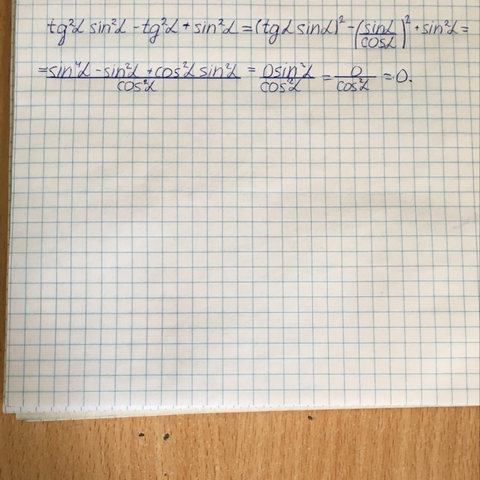 tg²α sin²α - tg²α + sin²α = (tgα sinα)² - (sinα/cosα)² + sin²α =
= (sin⁴α - sin²α + cos²α sin²α)/cos²α = 0sin²α/cos²α = 0/cos²α = 0.